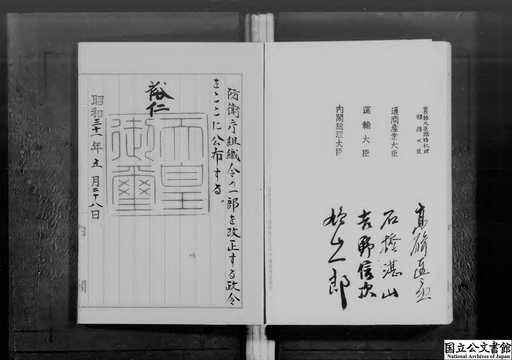 農林大臣臨時代理
国務大臣 高碕達之助
通商産業大臣 石橋湛山
運輸大臣 吉野信次
内閣総理大臣 鳩山一郎
防衛庁組織令の一部を改正する政令
をここに公布する。
裕仁
天皇御璽
昭和三十一年五月二十八日
国立公文書館
National Archives of Japan